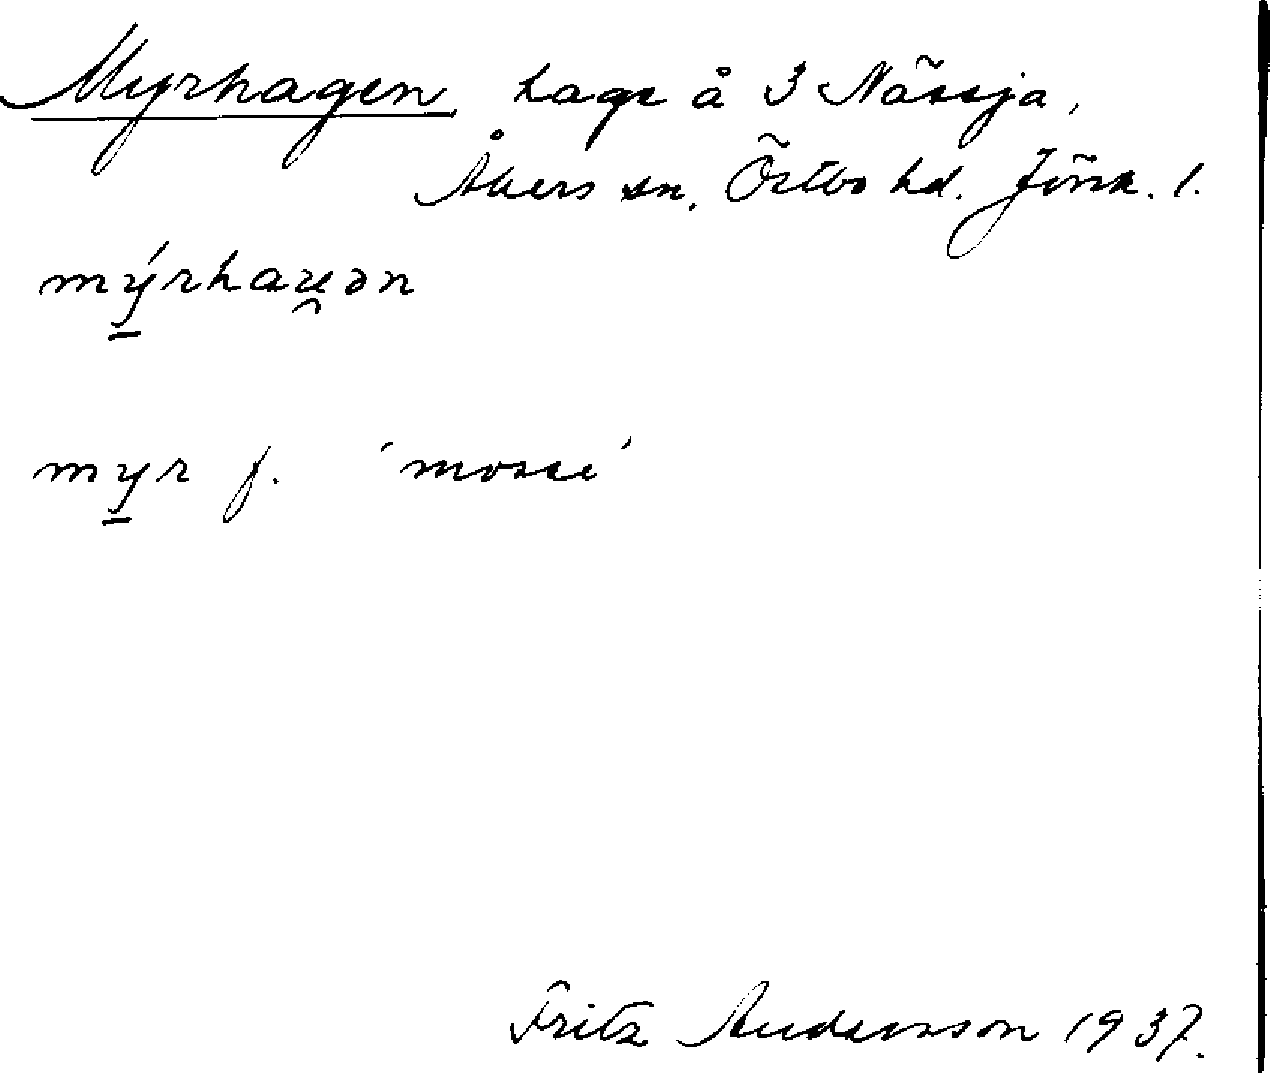 Myrhagen, hage å 3 Nässja,
Åkers sn, Östbo hd. Jönk. l.
mýrhau̯ən
myr f. 'mosse'
Fritz Andersson 1937.